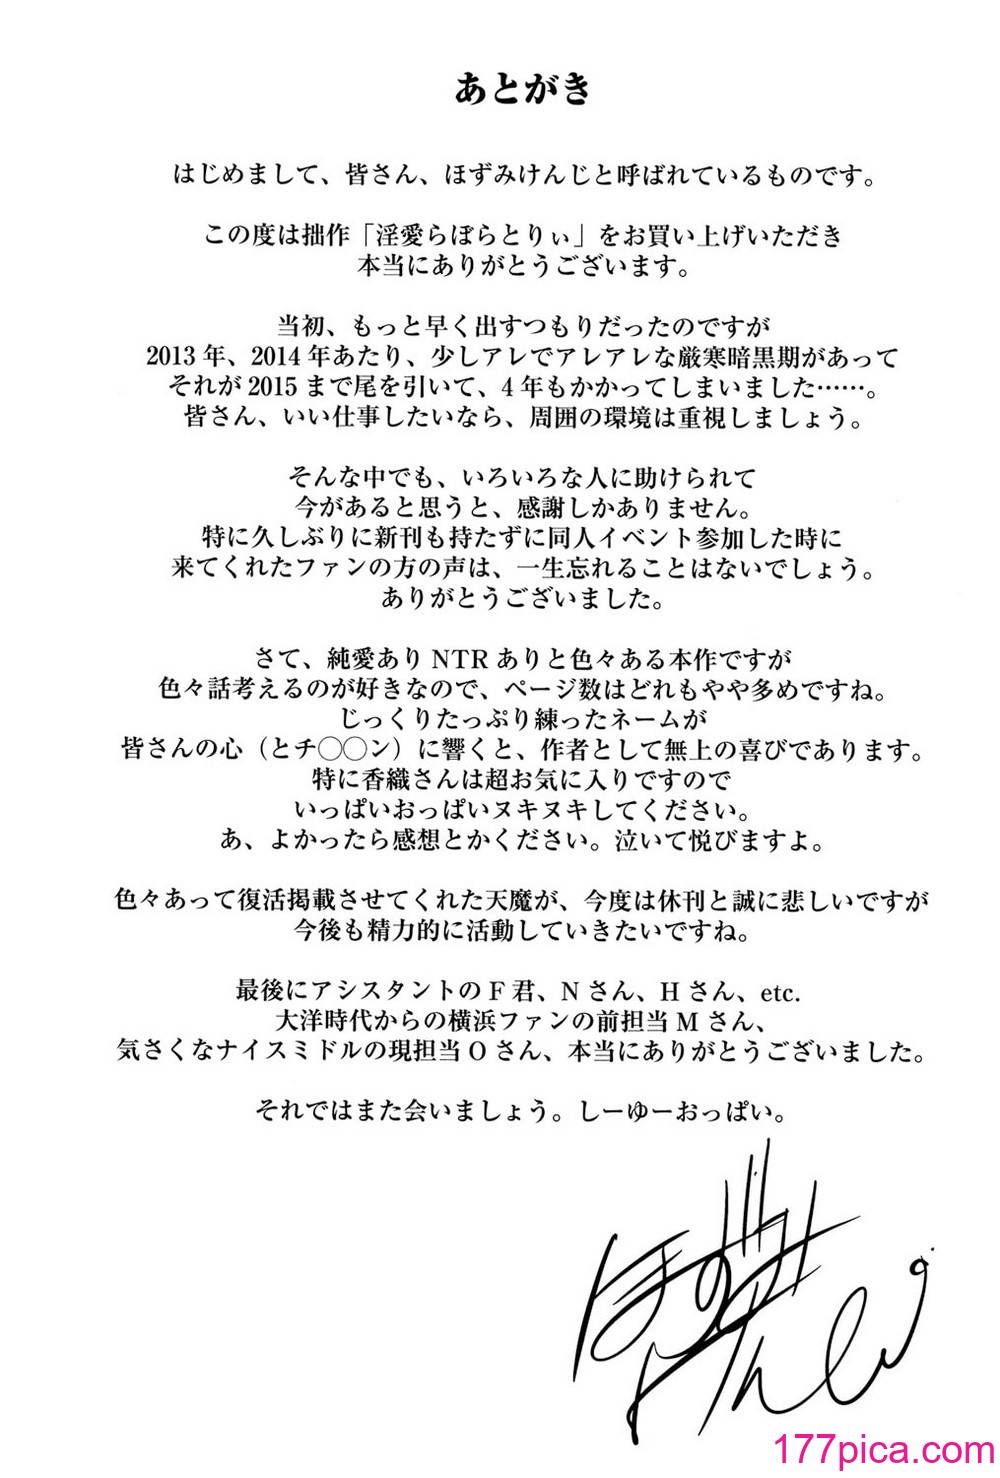 あとがき
はじめまして、皆さん、ほずみけんじと呼ばれているものです。
この度は拙作「淫愛らぼらとりぃ」をお買い上げいただき
本当にありがとうございます。
当初、もっと早く出すつもりだったのですが
2013年、2014年あたり、少しアレでアレアレな厳寒暗黒期があって
それが2015まで尾を引いて、4年もかかってしまいました……。
皆さん、いい仕事したいなら、周囲の環境は重視しましょう。
そんな中でも、いろいろな人に助けられて
今があると思うと、感謝しかありません。
特に久しぶりに新刊も持たずに同人イベント参加した時に
来てくれたファンの方の声は、一生忘れることはないでしょう。
ありがとうございました。
さて、純愛ありNTRありと色々ある本作ですが
色々話考えるのが好きなので、ページ数はどれもやや多めですね。
じっくりたっぷり練ったネームが
皆さんの心（とチ◯◯ン）に響くと、作者として無上の喜びであります。
特に香織さんは超お気に入りですので
いっぱいおっぱいヌキヌキしてください。
あ、よかったら感想とかください。泣いて悦びますよ。
色々あって復活掲載させてくれた天魔が、今度は休刊と誠に悲しいですが
今後も精力的に活動していきたいですね。
最後にアシスタントのF君、Nさん、Hさん、etc.
大洋時代からの横浜ファンの前担当Mさん、
気さくなナイスミドルの現担当Oさん、本当にありがとうございました。
それではまた会いましょう。しーゆーおっぱい。
ほずみ
けんじ
177pica.com